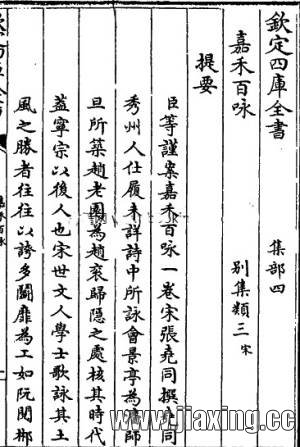 欽定四庫全書 集部四
嘉禾百咏 別集類三 宋
提要
臣等謹案嘉禾百咏一卷宋張堯同撰堯同
秀州人仕履未詳詩中所詠會景亭為潘師
旦所築趙老園為趙袞歸隐之處核其時代
蓋寧宗以後人也宋世文人學士歌詠其土
風之勝者往往以誇多鬭靡為工如阮閱郴
www.jiaxing.cc